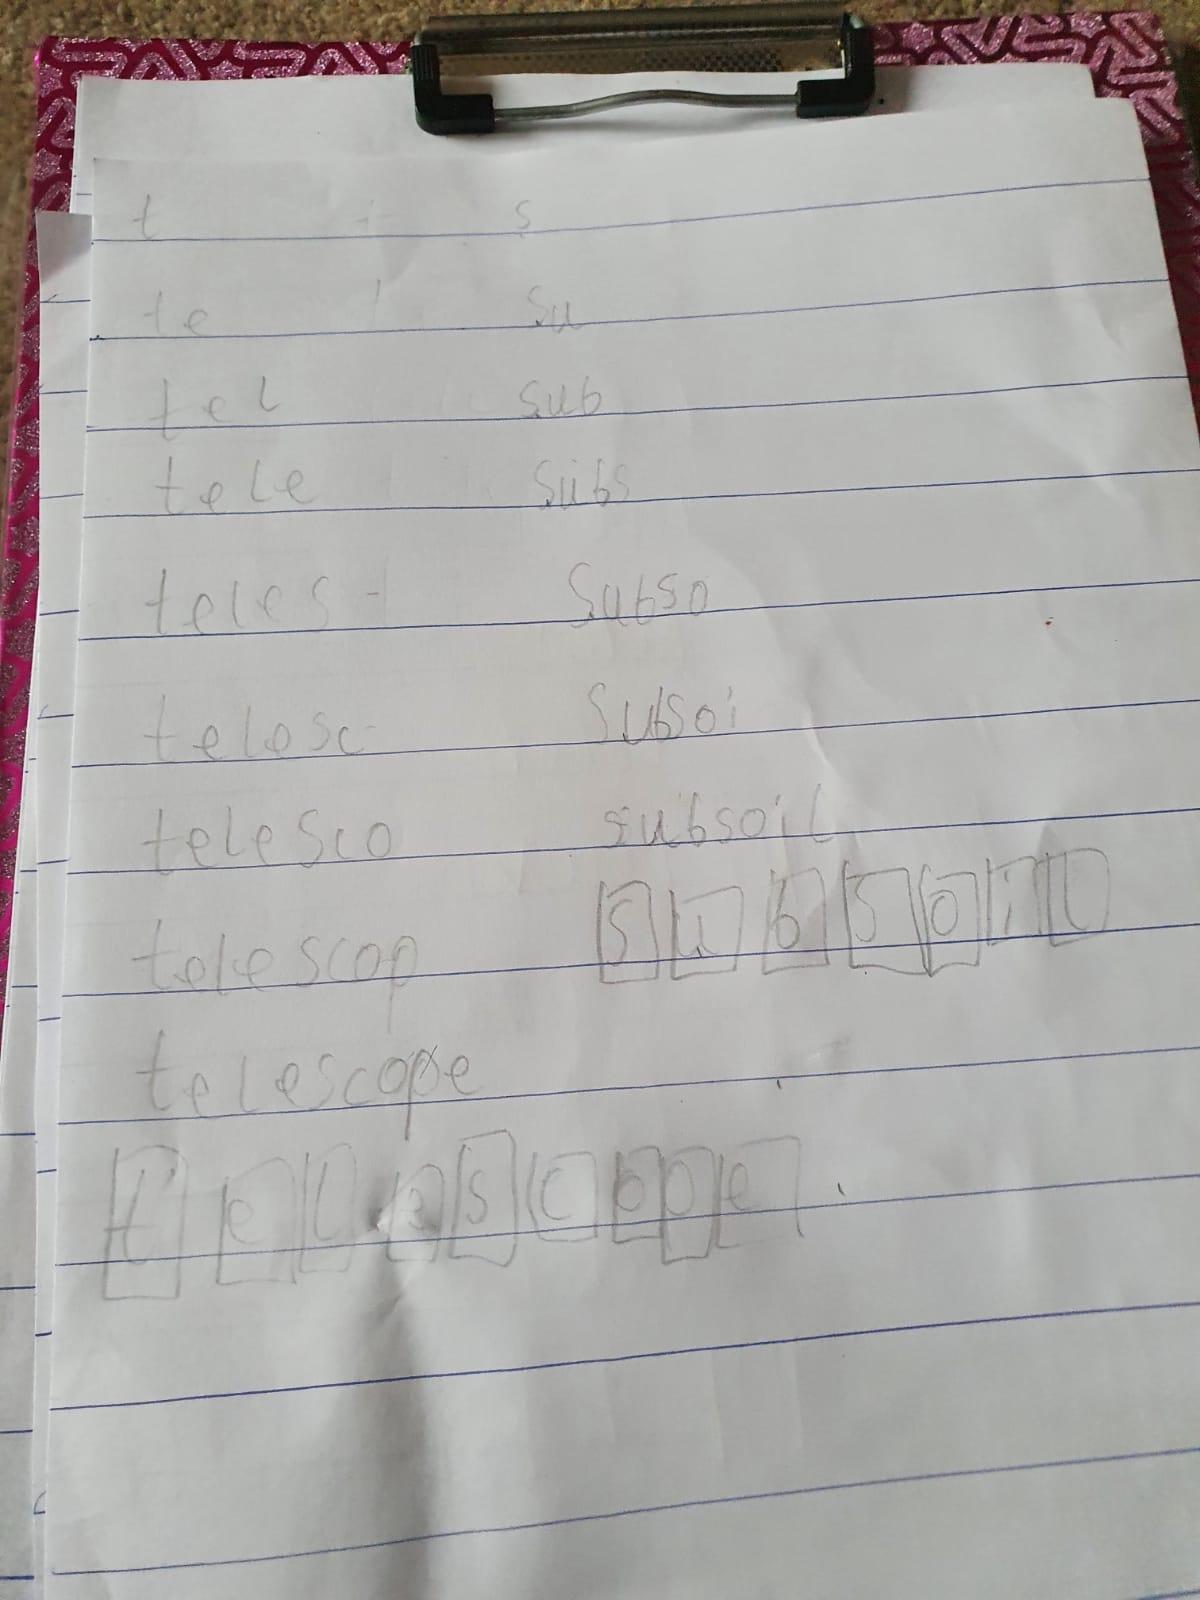 t s
te su
tel sub
tele subs
teles subso
telesc subsoi
telesco subsoil
telescop subsoil
telescope
telescope